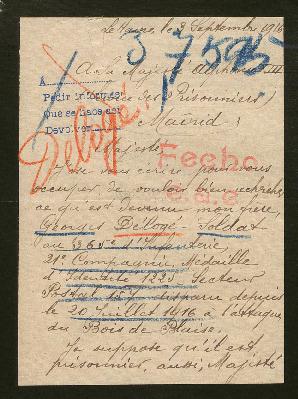 le 2 Septembre 1916
37595
A Sa Majesté Alphonse XIII
A
Pedir informes
Que se haga
Devolver
des Prisonniers
Madrid
Déloge
Majesté
Fecho
J'ose vous écrire pour vous
occuper de vouloir bien rechercher
ce qu'est devenu mon frère,
Georges Déloge - Soldat
au 365e d'Infanterie,
21e Compagnie, Médaille
d'Identité 1225 - Secteur
Postal 157 disparu depuis
le 20 Juillet 1916 à l'attaque
du Bois de
Je suppose qu'il est
prisonnier, aussi, Majesté